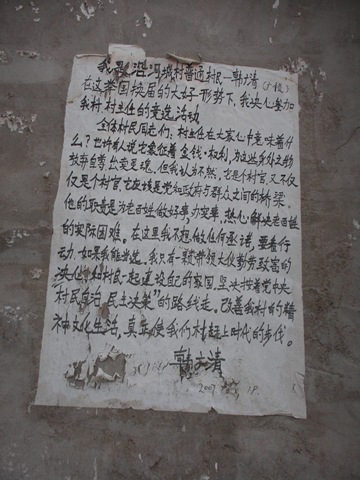 我是沿河城村普通村民—韩才清
在这举国换届的大好形势下,我决心参加
我村村主任的竞选活动
全体村民同志们,村主任在大家心中意味着什
么?也许有人说它象征着金钱·权利,为这
放弃自尊出卖灵魂。但我认为不然,它是个村官,又不仅
仅是个村官,它应该是党和政府与群众之间的桥梁。
他的职责是为老百姓做好事办实事,热心解决老百姓
的实际困难。在这里我不想做任何承诺,要看行
动。如果我能当选,我只有一颗带领大伙勤劳致富的
决心。和村民一起建设自己的家园,坚决按着党中央
村民自治,民主决策"的路线走。改善我村的精
神文化生活,真正使我们村赶上时代的步伐。
韩才清
2007